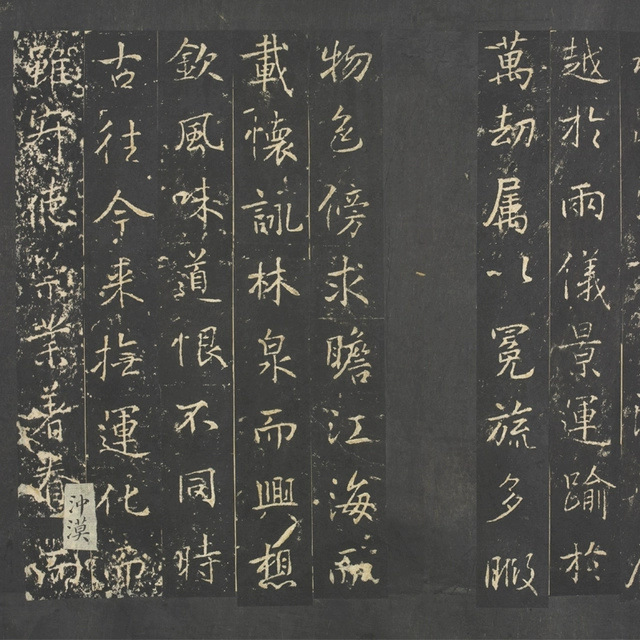 越於兩儀景運踰於
萬劫属以冕旒多暇
物色傍求瞻江海而
載懷詠林泉而興想
欽風味道恨不同時
古往今来撫運化而
雖德業著而
沖漠